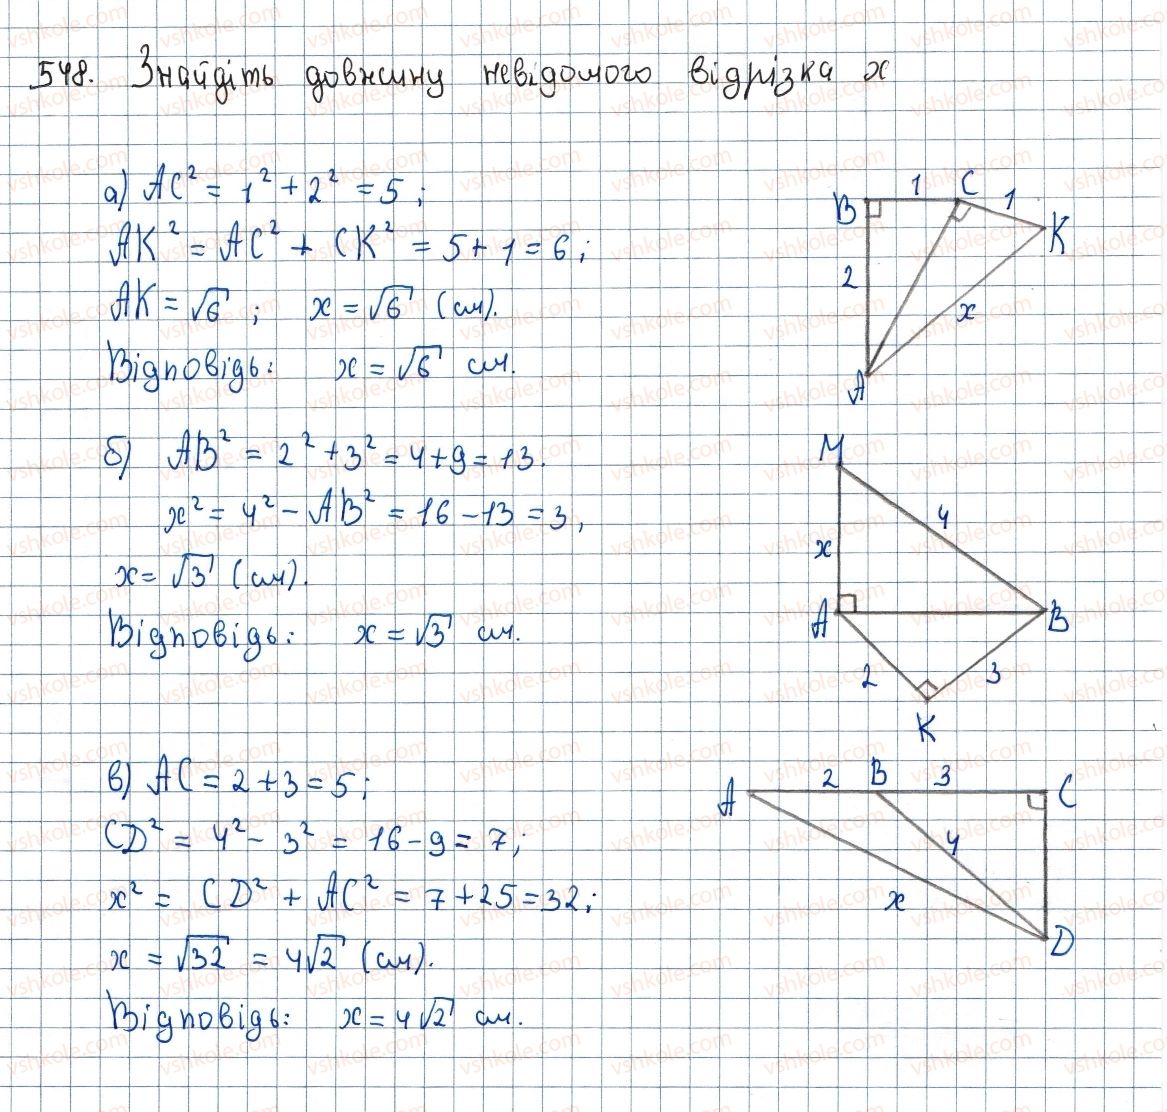 548. Знайдіть довжину невідомого відрізка x
а) AC² = 1² + 2² = 5;
AK² = AC² + CK² = 5 + 1 = 6;
AK = √6; x = √6 (см).
Відповідь: x = √6 см.
B 1 C 1 K
2 x
A
б) AB² = 2² + 3² = 4 + 9 = 13.
x² = 4² - AB² = 16 - 13 = 3,
x = √3 (см).
Відповідь: x = √3 см.
M
x 4
A B
2 3
K
в) AC = 2 + 3 = 5;
CD² = 4² - 3² = 16 - 9 = 7;
x² = CD² + AC² = 7 + 25 = 32;
x = √32 = 4√2 (см).
Відповідь: x = 4√2 см.
A 2 B 3 C
4
x
D
vshkole.com